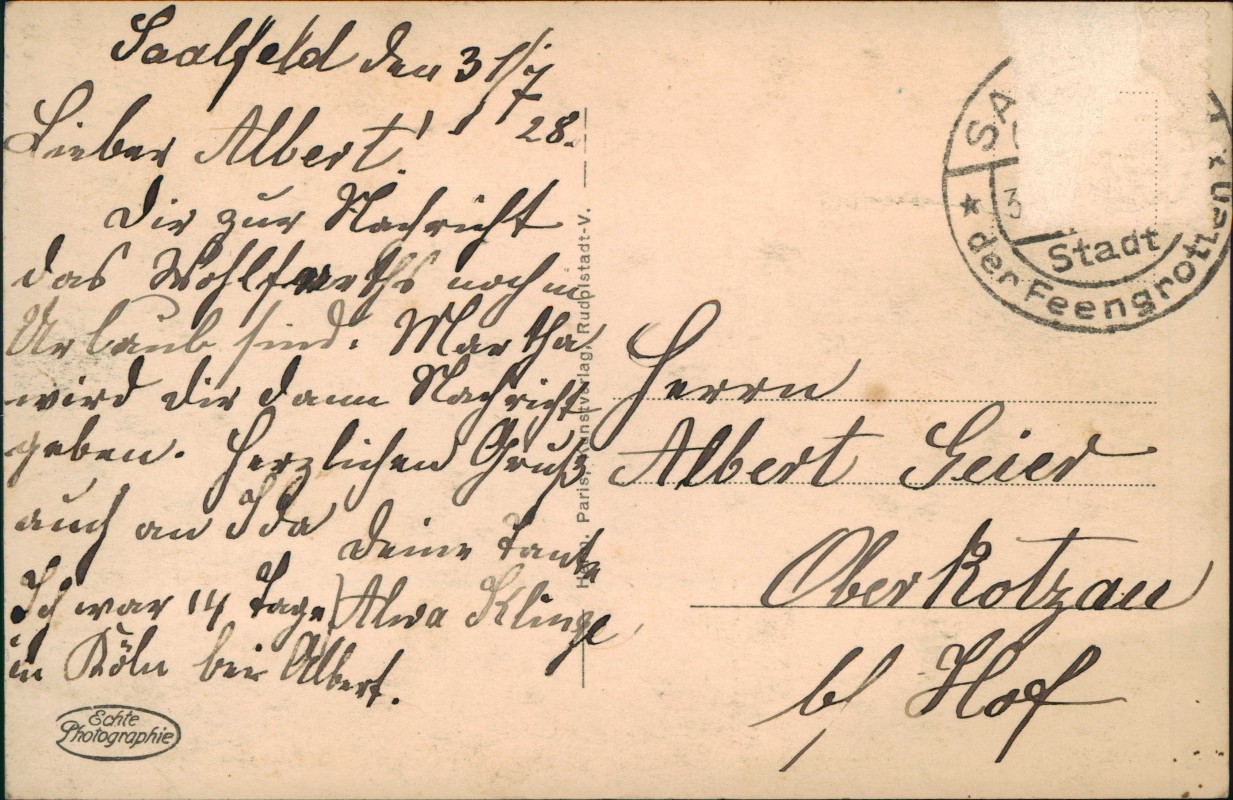 Saalfeld den 31/7
28.
Lieber Albert!
Dir zur Nachricht
das Wohlfarths noch in
Urlaub sind. Martha
wird dir dann Nachricht
geben. Herzlichen Gruß
auch an Ida
Deine Tante
Ich war 14 Tage
in Köln bei Albert.
Echte
Photographie
Paris, Kunstverlag, Rudolstadt-V.
Stadt
der Feengrotten
Herrn
Albert Geier
Oberkotzau
b/ Hof